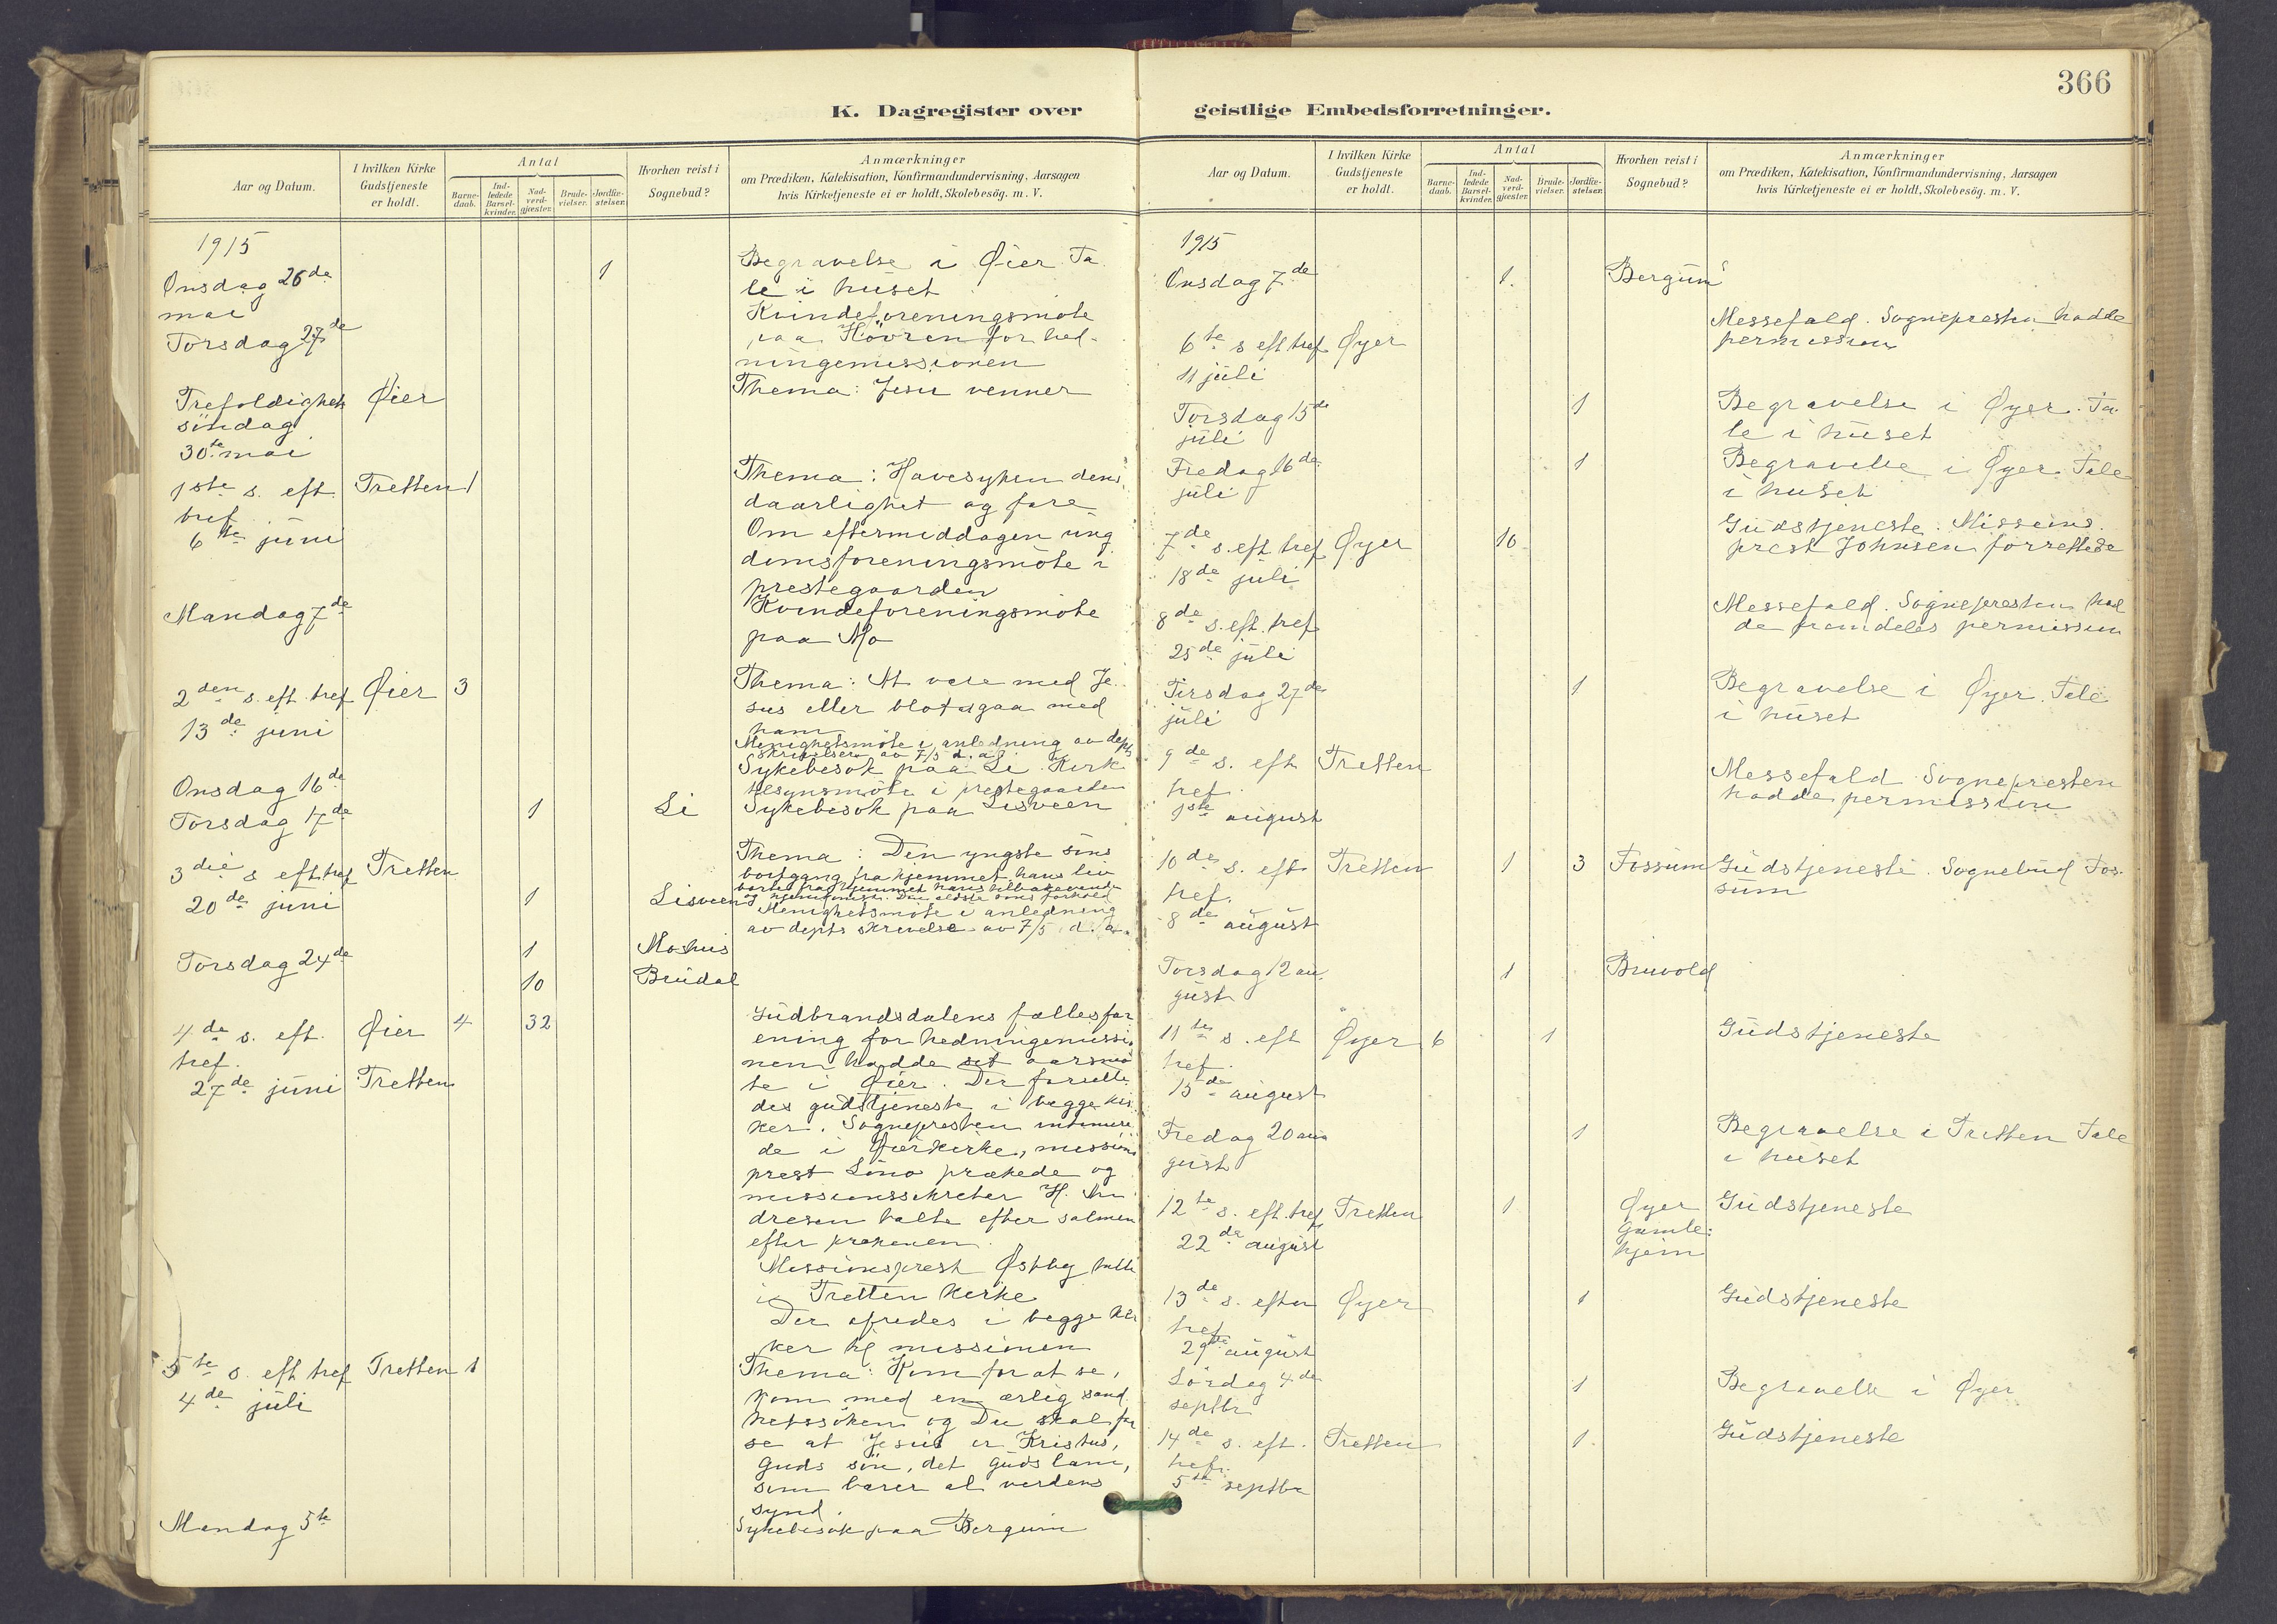 366
K. Dagregister over geistlige Embedsforretninger.
Aar og Datum.
I hvilken Kirke Gudstjeneste er holdt.
Antal
Barne-daab.
Ind-ledede Barsel-kvinder.
Nad-verd-gjester.
Brude-vielser.
Jordfæ-stelser.
Hvorhen reist i Sognebud?
Anmærkninger
om Prædiken, Katekisation, Konfirmandundervisning, Aarsagen
hvis Kirketjeneste ei er holdt, Skolebesög. m. V.
1915
Onsdag 26de mai 1 Begravelse i Øier. Ta
le i huset
Torsdag 27de Kvindeforeningsmöte
paa Hövren for hed-
ningemissionen
Trefoldighets Øier Thema: Jesu venner
söndag
30te mai
1ste s. eft. Tretten 1 Thema: Havesyken dens
tref daarlighet og fare
6te juni Om eftermiddagen ung
domsforeningsmöte i
prestegaarden
Mandag 7de Kvindeforeningsmöte
paa Mo
2den s. eft. tref Øier 3 Thema: At være med Je
13de juni sus eller blot gaa med
ham
Menighetsmöte i anledning av depts
skrivelse av 7/5 d. a.
Onsdag 16de Sykebesök paa Li. Kirk
tilsynsmöte i prestegaarden
Torsdag 17de 1 Li Sykebesök paa Lisveen
3die s eft tref Tretten Thema: Den yngste söns
20de juni bortgang fra hjemmet, hans liv
1 Lisveen borte fra hjemmet hans tilbakevenden
Menighetsmöte i anledning
av depts skrivelse av 7/5 d. a.
Torsdag 24de 1 Moshus
10 Brudal
4de s. eft. Øier 4 32 Gudbrandsdalens fællesfor
tref. ening for hedningemissio
27de juni Tretten nen hadde sit aarsmö
te i Øier. Der forrette
des gudstjeneste i begge kir
ker. Sognepresten intimere
de i Øier kirke, missions
prest Lönö prækede og
missionssekretær H. An
dresen talte efter salmen
efter prækenen.
Missionsprest Østby talte
i Tretten kirke
Der ofredes i begge kir
ker til missionen
5te s. eft tref Tretten 1 Thema: Kom for at se,
4de juli kom med en ærlig sand
hetssöken og Du skal faa
se at Jesus er Kristus,
Guds sön, det Guds lam,
som bærer al verdens
synd.
Mandag 5te Sykebesök paa Bergum
Aar og Datum.
I hvilken Kirke Gudstjeneste er holdt.
Antal
Barne-daab.
Ind-ledede Barsel-kvinder.
Nad-verd-gjester.
Brude-vielser.
Jordfæ-stelser.
Hvorhen reist i Sognebud?
Anmærkninger
om Prædiken, Katekisation, Konfirmandundervisning, Aarsagen
hvis Kirketjeneste ei er holdt, Skolebesög. m. V.
1915
Onsdag 7de 1. Bergum
6te s eft tref Øyer Messefald. Sognepresten hadde
11 juli permission
Torsdag 15de 1 Begravelse i Øyer. Ta
juli le i huset
Fredag 16de 1 Begravelse i Øyer. Tale
juli i huset
7de s. eft tref Øyer 10 Gudstjeneste. Missions
18de juli prest Johnsen forrettede
8de s. eft. tref Messefald. Sognepresten had
25de juli de fremdeles permission
Tirsdag 27de 1 Begravelse i Øyer. Tale
juli i huset
9de s. eft Tretten Messefald Sognepresten
tref. hadde permission
1ste august
10de s. eft Tretten 1 3 Fossum Gudstjeneste. Sognebud Fos-
tref. sum
8de august
Torsdag 12 au 1 Bruvold
gust
11te s. eft Øyer 6 1 Gudstjeneste
tref.
15de august
Fredag 20 au 1 Begravelse i Tretten Tale
gust i huset
12te s. eft. tref Tretten 1 Øyer Gudstjeneste
22de august Gamle:
hjem
13de s. efter Øyer 1 Gudstjeneste
tref
29de august
Lördag 4de 1 Begravelse i Øyer
septbr
14de s. eft. Tretten 1. Gudstjeneste
tref.
5te septbr